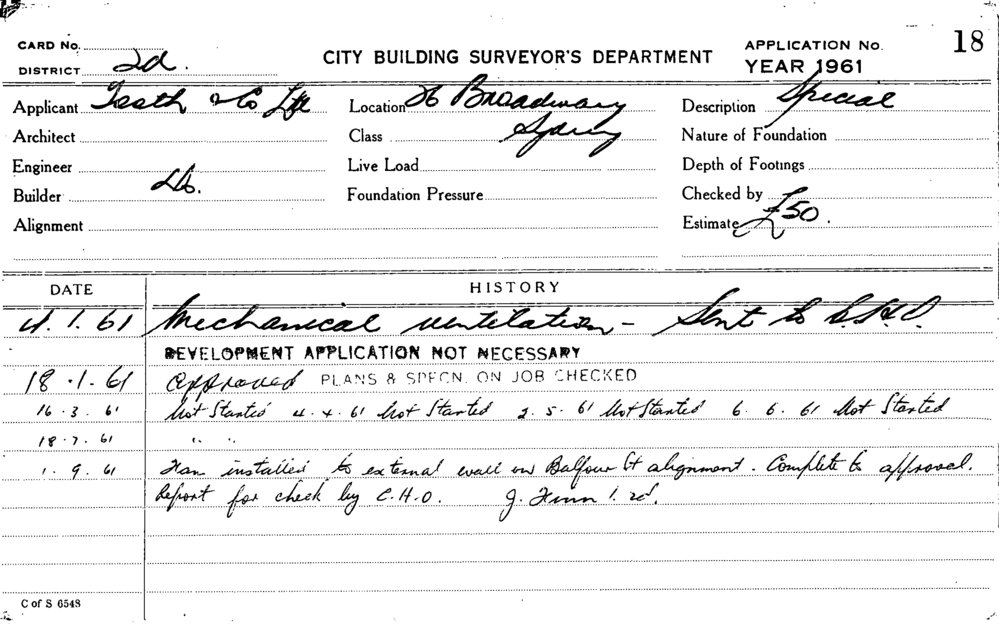 CARD No. 18
DISTRICT 2d. CITY BUILDING SURVEYOR'S DEPARTMENT APPLICATION No.
YEAR 1961
Applicant Tooth & Co Ltd Location 26 Broadway Description Special
Architect Class Sydney Nature of Foundation
Engineer Live Load Depth of Footings
Builder do. Foundation Pressure Checked by
Alignment Estimate £50.
DATE HISTORY
4.1.61 Mechanical ventilation - Sent to C.H.O.
DEVELOPMENT APPLICATION NOT NECESSARY
18.1.61 Approved PLANS & SPECN. ON JOB CHECKED
16.3.61 Not Started 4.4.61 Not Started 2.5.61 Not Started 6.6.61 Not Started
18.7.61 " "
1.9.61 Fan installed to external wall on Balfour St alignment. Complete to approval.
Report for check by C.H.O. J.
C of S 6548